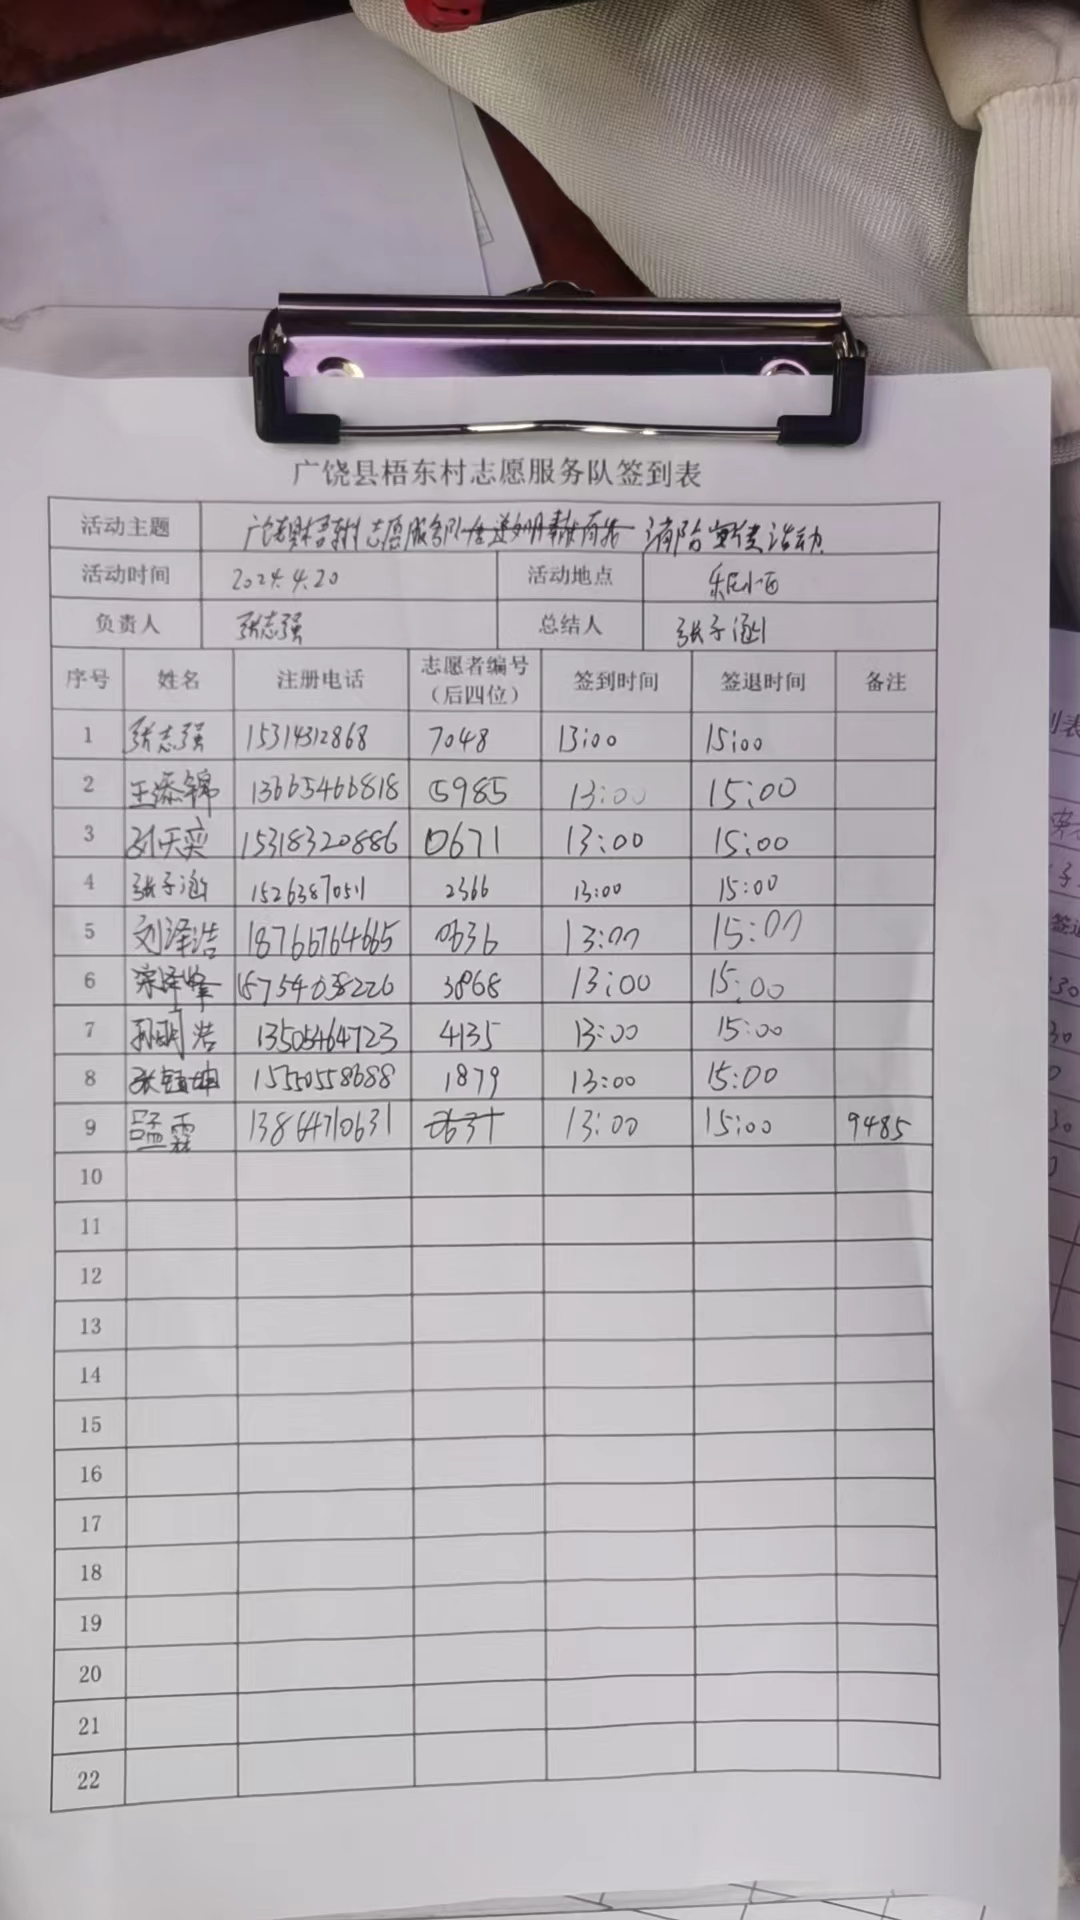 广饶县梧东村志愿服务队签到表
活动主题 广饶县梧东村志愿服务队 消防宣传类活动
活动时间 2024.4.20 活动地点 乐民小区
负责人 张志强 总结人 张子涵
序号 姓名 注册电话 志愿者编号（后四位） 签到时间 签退时间 备注
1 张志强 15314312868 7048 13:00 15:00
2 王添锦 13665466818 5985 13:00 15:00
3 刘天奕 15318320886 0671 13:00 15:00
4 张子涵 15263870511 2366 13:00 15:00
5 刘泽浩 18766764665 0636 13:00 15:00
6 宋泽峰 15754638226 3868 13:00 15:00
7 孙明浩 13505464723 4135 13:00 15:00
8 张镇坤 15550558688 1879 13:00 15:00
9 吕孟霖 13864710631 13:00 15:00 9485
10
11
12
13
14
15
16
17
18
19
20
21
22